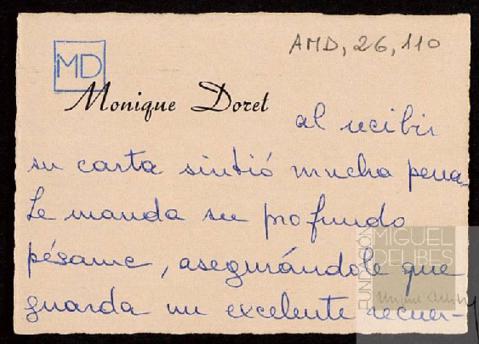 AMD, 26, 110
MD
Monique Doret
al recibir
su carta sintió mucha pena.
Le manda su profundo
pésame, asegurándole que
guarda un excelente recuer-
FUNDACIÓN
MIGUEL
DELIBES